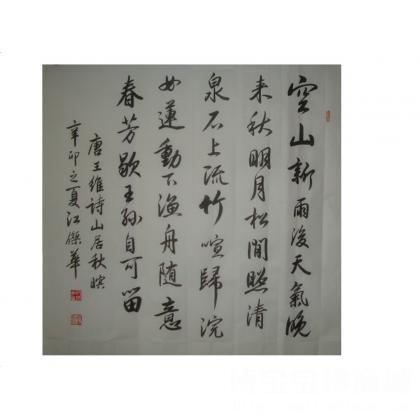 空山新雨後天氣晚
来秋明月松間照清
泉石上流竹喧歸浣
女蓮動下漁舟随意
春芳歇王孫自可留
唐王維詩山居秋暝
辛卯之夏江傑華